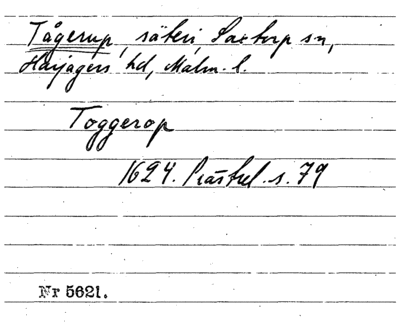 Tågerup, säteri, Saxtorp sn,
Harjagers hd, Malm. l.
Toggerop
1624. Prästrel. s. 79
Nr 5621.